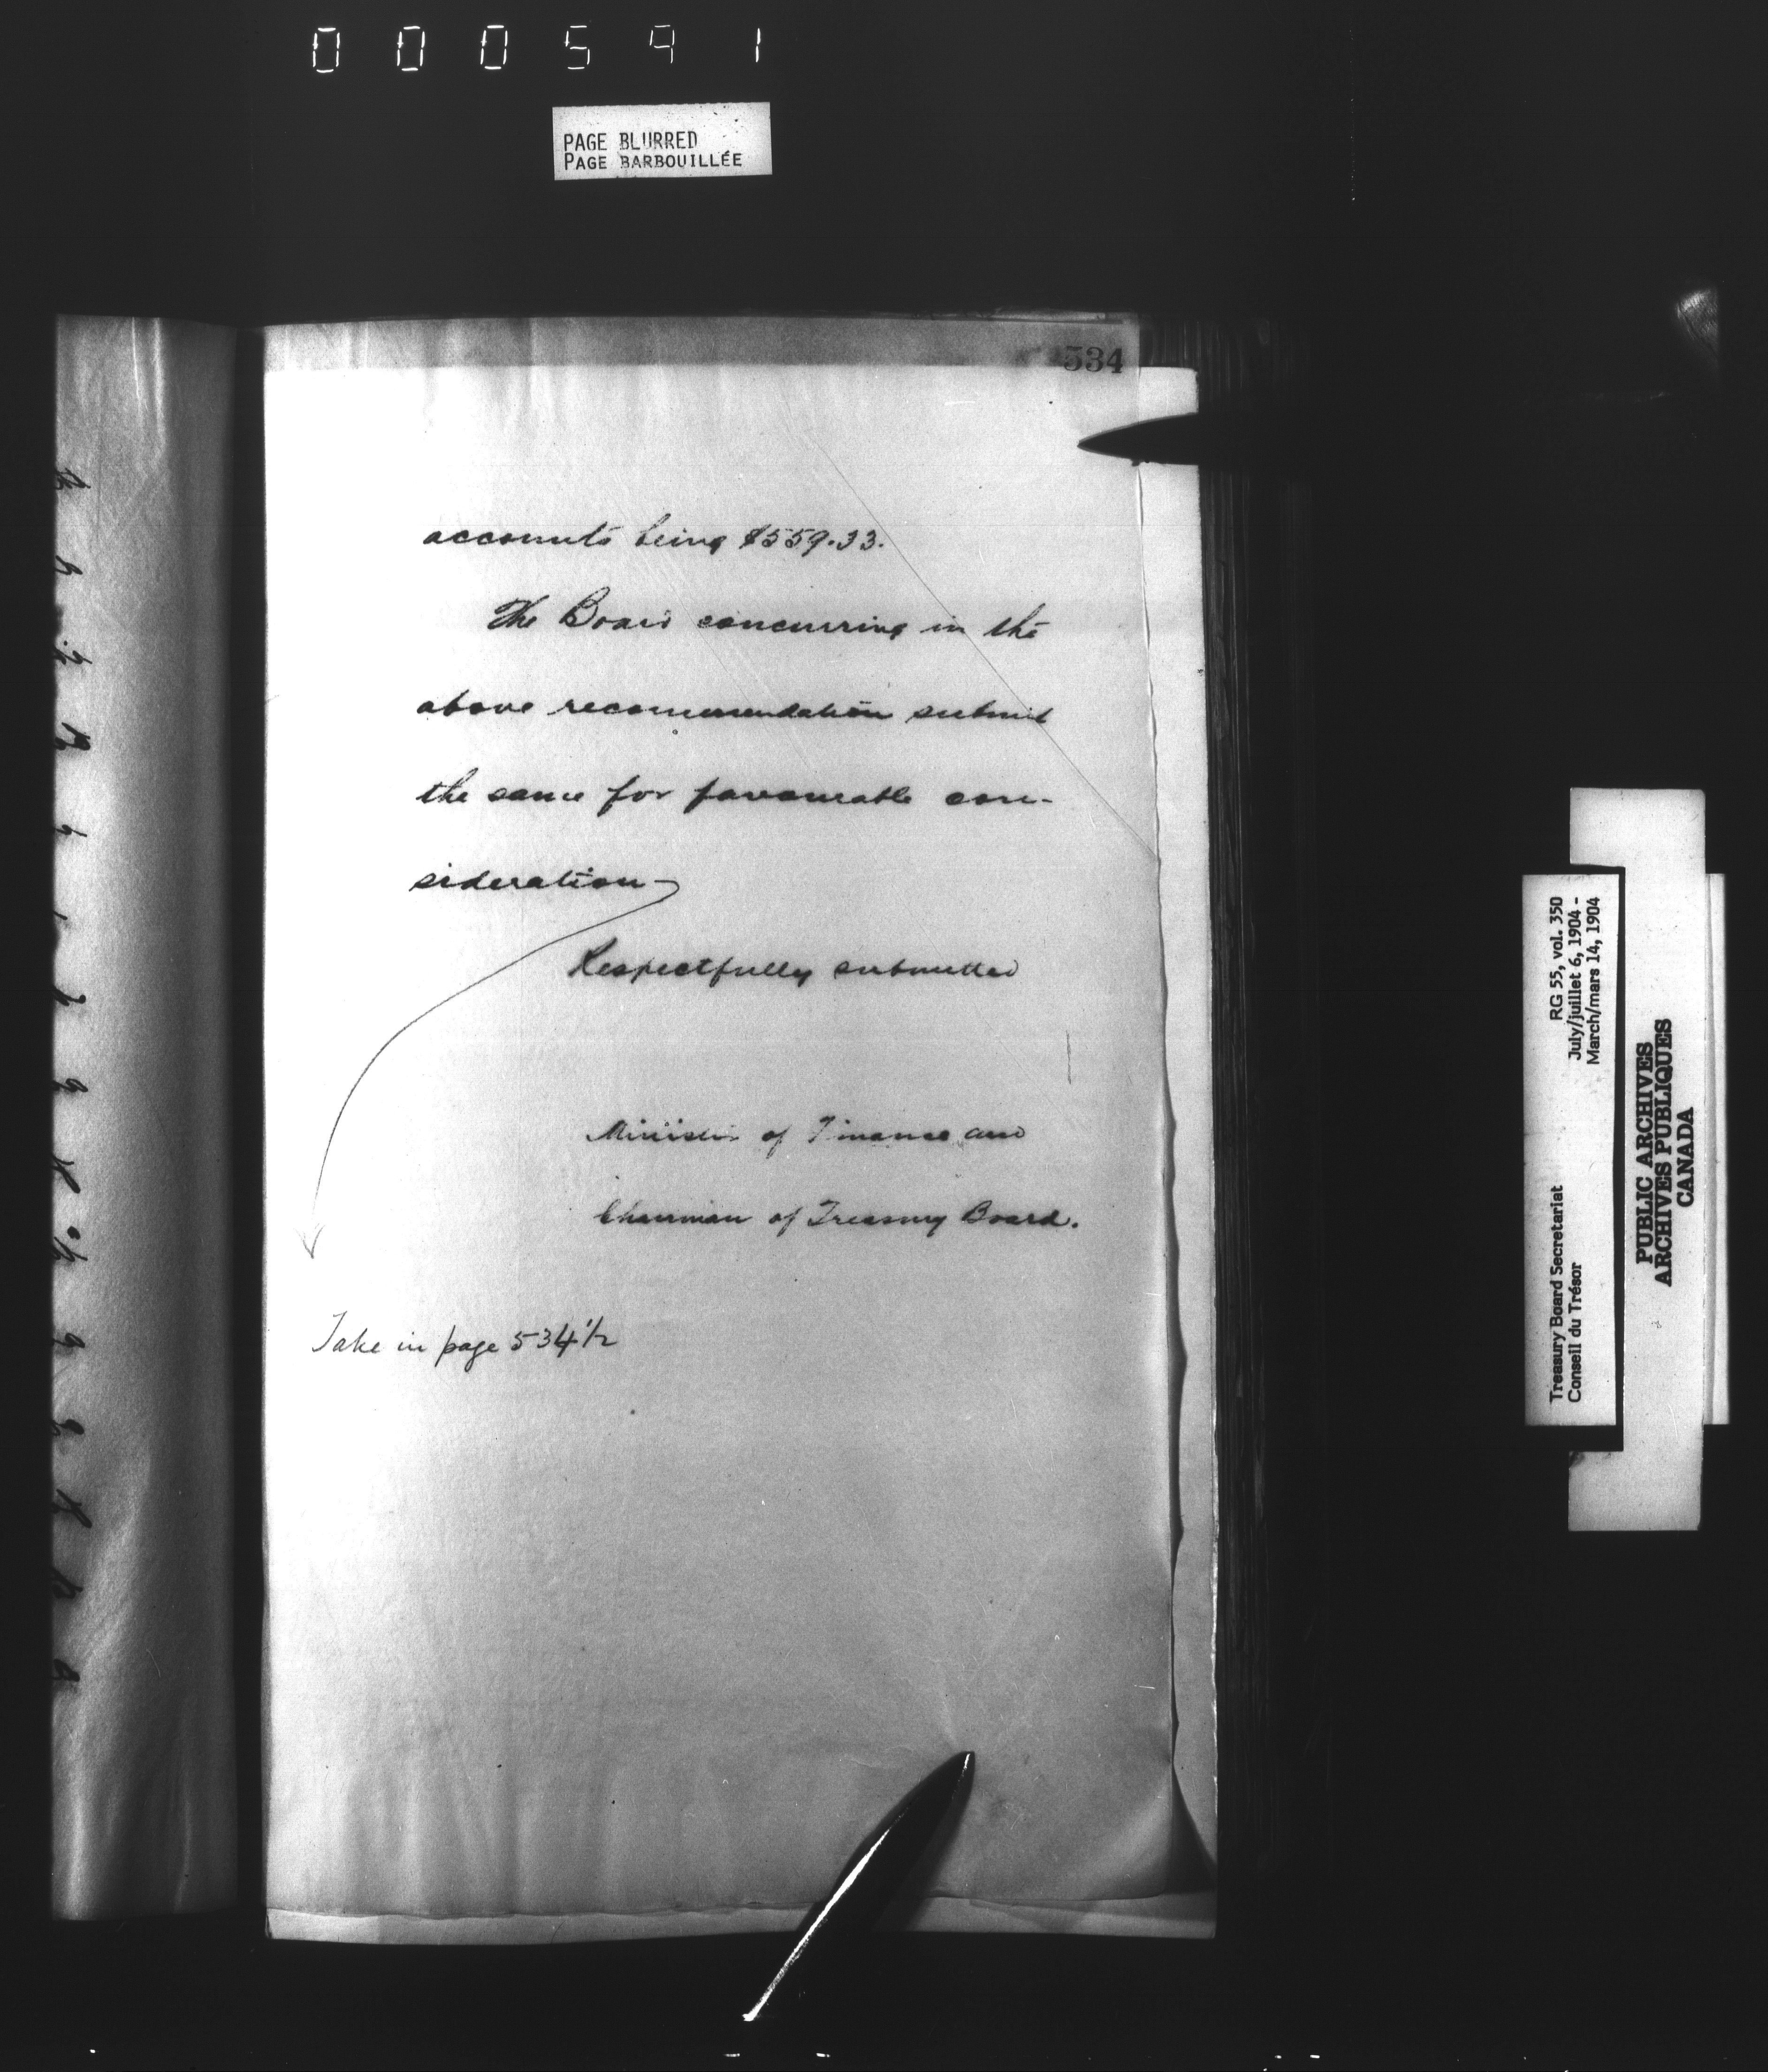 000591
PAGE BLURRED
PAGE BARBOUILLÉE
534
accounts being $559.33.
The Board concurring in the
above recommendation submit
the same for favourable con-
sideration
Respectfully submitted
Minister of Finance and
Chairman of Treasury Board.
Take in page 534½
Treasury Board Secretariat RG 55, vol. 350
Conseil du Trésor July/juillet 6, 1904 -
March/mars 14, 1904
PUBLIC ARCHIVES
ARCHIVES PUBLIQUES
CANADA